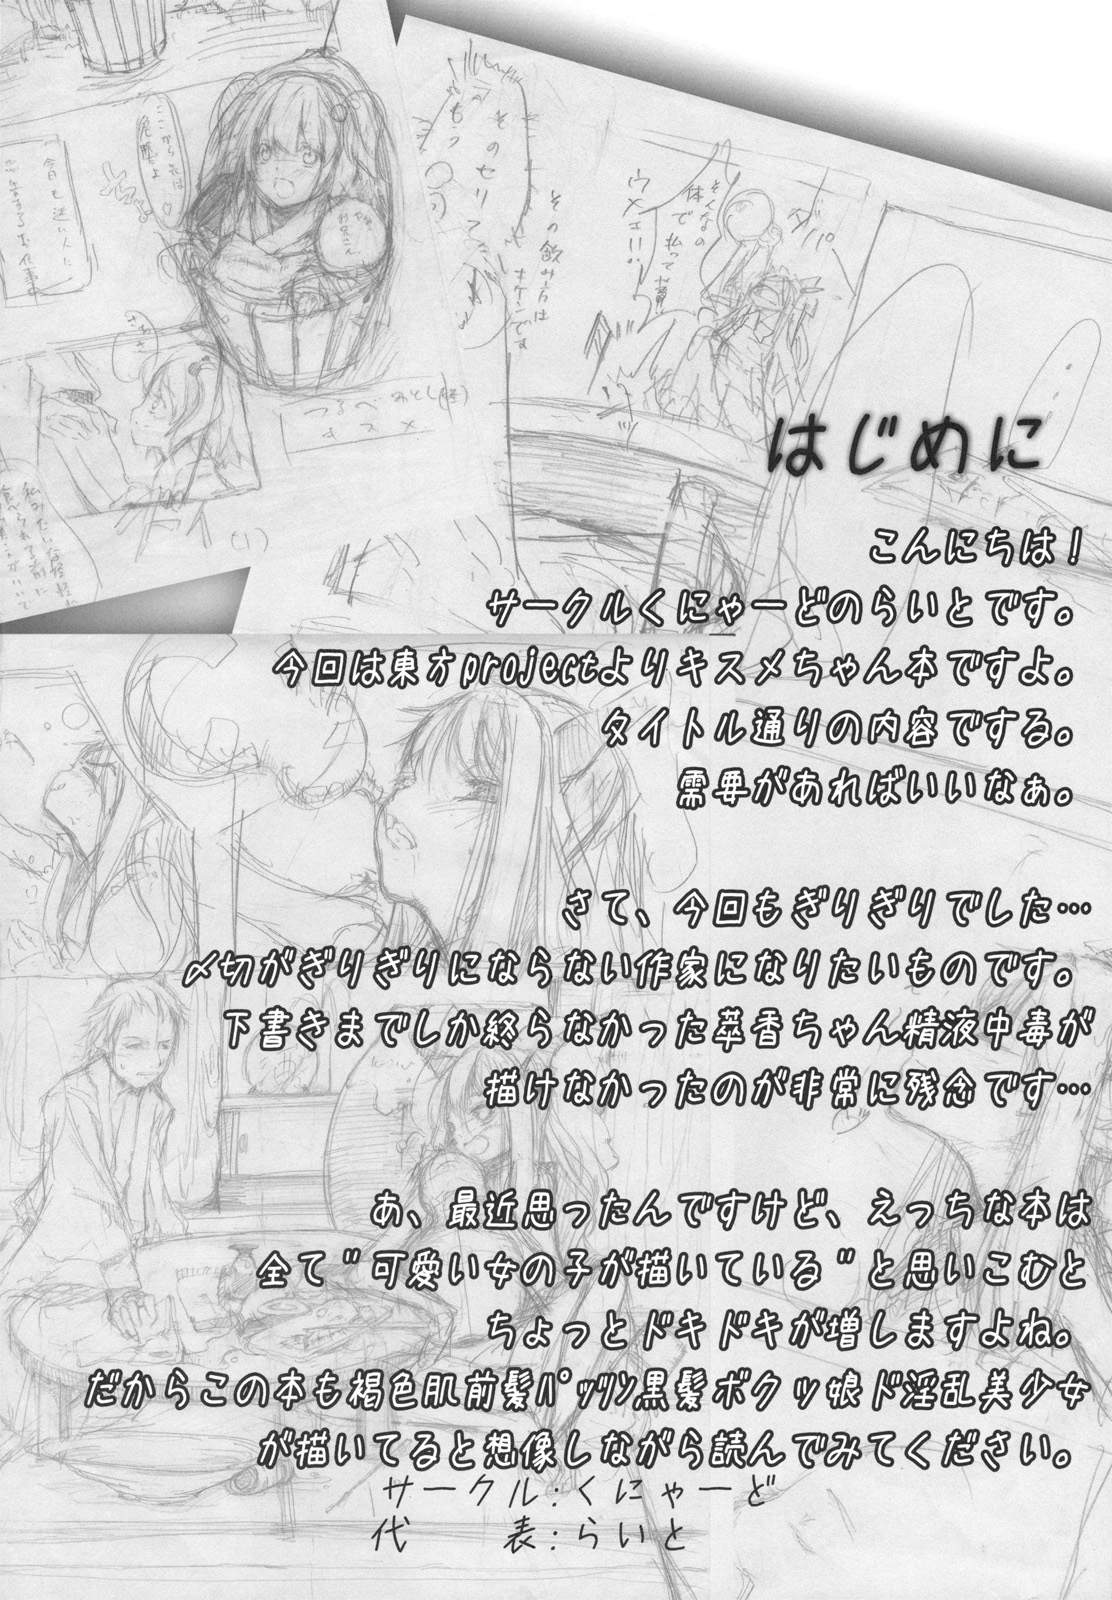 はじめに
こんにちは！
サークルくにゃーどのらいとです。
今回は東方projectよりキスメちゃん本ですよ。
タイトル通りの内容でする。
需要があればいいなぁ。
さて、今回もぎりぎりでした…
〆切がぎりぎりにならない作家になりたいものです。
下書きまでしか終らなかった萃香ちゃん精液中毒が
描けなかったのが非常に残念です…
あ、最近思ったんですけど、えっちな本は
全て"可愛い女の子が描いている"と思いこむと
ちょっとドキドキが増しますよね。
だからこの本も褐色肌前髪ﾊﾟｯﾂﾝ黒髪ボクッ娘ド淫乱美少女
が描いてると想像しながら読んでみてください。
サークル:くにゃーど
代　　表:らいと
ここから先は
危険よ
つるべおとし(怪)
キスメ
(1)
そのセリフ
もう
その飲み方は
キケンです
そんなの
体で払って貰
ウメェ!!